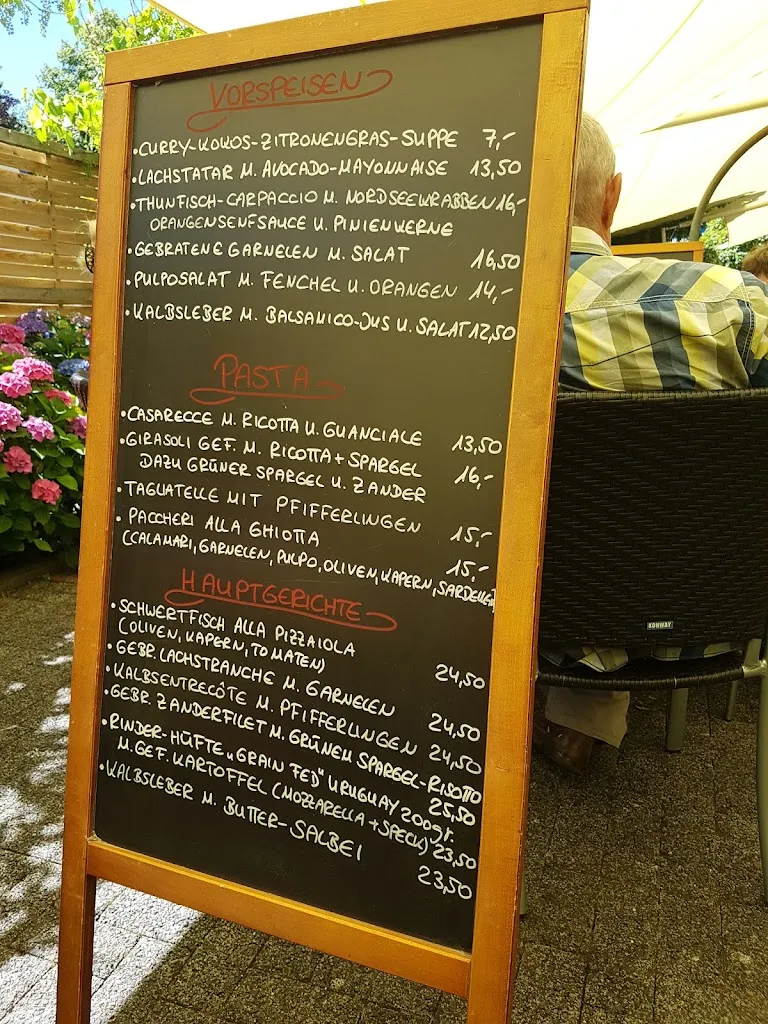 VORSPEISEN
•CURRY-KOKOS-ZITRONENGRAS-SUPPE 7,-
•LACHSTATAR M. AVOCADO-MAYONNAISE 13,50
•THUNFISCH-CARPACCIO M. NORDSEEKRABBEN 16,-
ORANGENSENFSAUCE U. PINIENKERNE
•GEBRATENE GARNELEN M. SALAT 16,50
•PULPOSALAT M. FENCHEL U. ORANGEN 14,-
•KALBSLEBER M. BALSAMICO-JUS U. SALAT 12,50
PASTA
•CASARECCE M. RICOTTA U. GUANCIALE 13,50
•GIRASOLI GEF. M. RICOTTA + SPARGEL 16,-
DAZU GRÜNER SPARGEL U. ZANDER
•TAGLIATELLE MIT PFIFFERLINGEN 15,-
•PACCHERI ALLA GHIOTTA 15,-
(CALAMARI, GARNELEN, PULPO, OLIVEN, KAPERN, SARDELLEN)
HAUPTGERICHTE
•SCHWERTFISCH ALLA PIZZAIOLA 24,50
(OLIVEN, KAPERN, TOMATEN)
•GEBR. LACHSTRANCHE M. GARNELEN 24,50
•KALBSENTRECÔTE M. PFIFFERLINGEN 24,50
•GEBR. ZANDERFILET M. GRÜNEM SPARGEL-RISOTTO 25,50
•RINDER-HÜFTE „GRAIN FED" URUGUAY 200gr.
M. GEF. KARTOFFEL (MOZZARELLA + SPECK) 23,50
•KALBSLEBER M. BUTTER-SALBEI 23,50
KONWAY